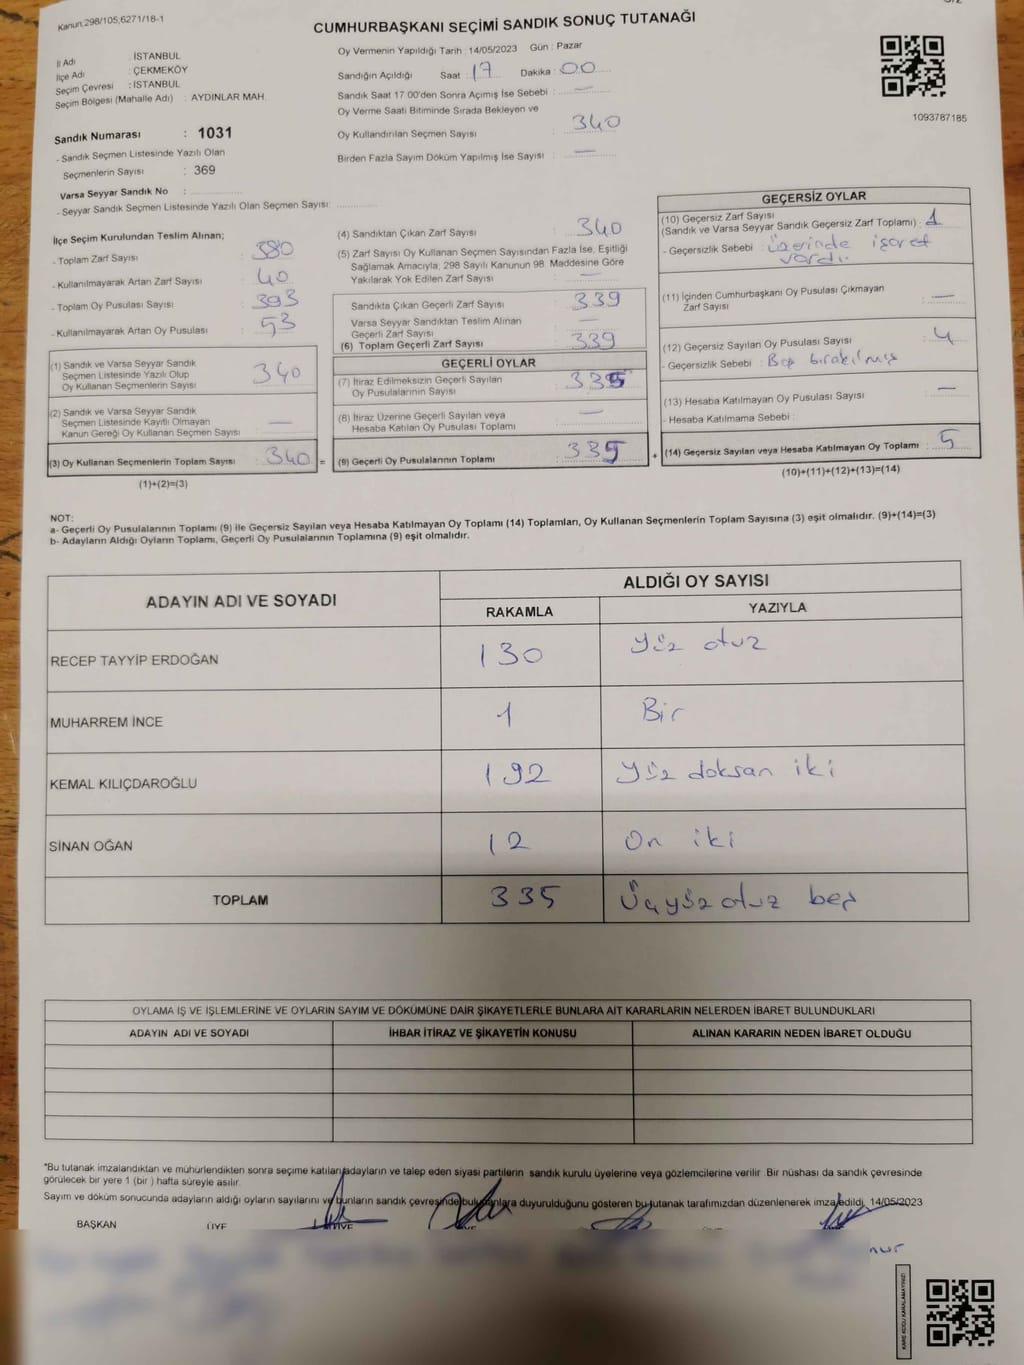 Kanun,298/105,6271/18-1
CUMHURBAŞKANI SEÇİMİ SANDIK SONUÇ TUTANAĞI
İl Adı : İSTANBUL
İlçe Adı : ÇEKMEKÖY
Seçim Çevresi : İSTANBUL
Seçim Bölgesi (Mahalle Adı) : AYDINLAR MAH.
Sandık Numarası : 1031
- Sandık Seçmen Listesinde Yazılı Olan
Seçmenlerin Sayısı : 369
Varsa Seyyar Sandık No :
- Seyyar Sandık Seçmen Listesinde Yazılı Olan Seçmen Sayısı:
Oy Vermenin Yapıldığı Tarih : 14/05/2023 Gün : Pazar
Sandığın Açıldığı Saat : 17 Dakika : 00
Sandık Saat 17.00'den Sonra Açımış İse Sebebi : —
Oy Verme Saati Bitiminde Sırada Bekleyen ve
Oy Kullandırılan Seçmen Sayısı : 340
Birden Fazla Sayım Döküm Yapılmış İse Sayısı : —
1093787185
İlçe Seçim Kurulundan Teslim Alınan;
- Toplam Zarf Sayısı : 380
- Kullanılmayarak Artan Zarf Sayısı : 40
- Toplam Oy Pusulası Sayısı : 393
- Kullanılmayarak Artan Oy Pusulası : 53
(1) Sandık ve Varsa Seyyar Sandık
Seçmen Listesinde Yazılı Olup
Oy Kullanan Seçmenlerin Sayısı : 340
(2) Sandık ve Varsa Seyyar Sandık
Seçmen Listesinde Kayıtlı Olmayan
Kanun Gereği Oy Kullanan Seçmen Sayısı : —
(3) Oy Kullanan Seçmenlerin Toplam Sayısı : 340 =
(1)+(2)=(3)
(4) Sandıktan Çıkan Zarf Sayısı : 340
(5) Zarf Sayısı Oy Kullanan Seçmen Sayısından Fazla İse, Eşitliği
Sağlamak Amacıyla, 298 Sayılı Kanunun 98. Maddesine Göre
Yakılarak Yok Edilen Zarf Sayısı : —
Sandıkta Çıkan Geçerli Zarf Sayısı : 339
Varsa Seyyar Sandıktan Teslim Alınan
Geçerli Zarf Sayısı : —
(6) Toplam Geçerli Zarf Sayısı : 339
GEÇERLİ OYLAR
(7) İtiraz Edilmeksizin Geçerli Sayılan
Oy Pusulalarının Sayısı : 335
(8) İtiraz Üzerine Geçerli Sayılan veya
Hesaba Katılan Oy Pusulası Toplamı : —
(9) Geçerli Oy Pusulalarının Toplamı : 335 +
GEÇERSİZ OYLAR
(10) Geçersiz Zarf Sayısı
(Sandık ve Varsa Seyyar Sandık Geçersiz Zarf Toplamı) : 1
- Geçersizlik Sebebi : üzerinde işaret
vardı.
(11) İçinden Cumhurbaşkanı Oy Pusulası Çıkmayan
Zarf Sayısı : —
(12) Geçersiz Sayılan Oy Pusulası Sayısı : 4
- Geçersizlik Sebebi : Boş bırakılmış
(13) Hesaba Katılmayan Oy Pusulası Sayısı : —
- Hesaba Katılmama Sebebi :
(14) Geçersiz Sayılan veya Hesaba Katılmayan Oy Toplamı : 5
(10)+(11)+(12)+(13)=(14)
NOT:
a- Geçerli Oy Pusulalarının Toplamı (9) ile Geçersiz Sayılan veya Hesaba Katılmayan Oy Toplamı (14) Toplamları, Oy Kullanan Seçmenlerin Toplam Sayısına (3) eşit olmalıdır. (9)+(14)=(3)
b- Adayların Aldığı Oyların Toplamı, Geçerli Oy Pusulalarının Toplamına (9) eşit olmalıdır.
ADAYIN ADI VE SOYADI ALDIĞI OY SAYISI
RAKAMLA YAZIYLA
RECEP TAYYİP ERDOĞAN 130 Yüz otuz
MUHARREM İNCE 1 Bir
KEMAL KILIÇDAROĞLU 192 Yüz doksan iki
SİNAN OĞAN 12 On iki
TOPLAM 335 Üçyüz otuz beş
OYLAMA İŞ VE İŞLEMLERİNE VE OYLARIN SAYIM VE DÖKÜMÜNE DAİR ŞİKAYETLERLE BUNLARA AİT KARARLARIN NELERDEN İBARET BULUNDUKLARI
ADAYIN ADI VE SOYADI İHBAR İTİRAZ VE ŞİKAYETİN KONUSU ALINAN KARARIN NEDEN İBARET OLDUĞU
*Bu tutanak imzalandıktan ve mühürlendikten sonra seçime katılan adayların ve talep eden siyasi partilerin sandık kurulu üyelerine veya gözlemcilerine verilir. Bir nüshası da sandık çevresinde
görülecek bir yere 1 (bir) hafta süreyle asılır.
Sayım ve döküm sonucunda adayların aldığı oyların sayılarını ve bunların sandık çevresinde bulunanlara duyurulduğunu gösteren bu tutanak tarafımızdan düzenlenerek imza edildi. 14/05/2023
BAŞKAN ÜYE ÜYE